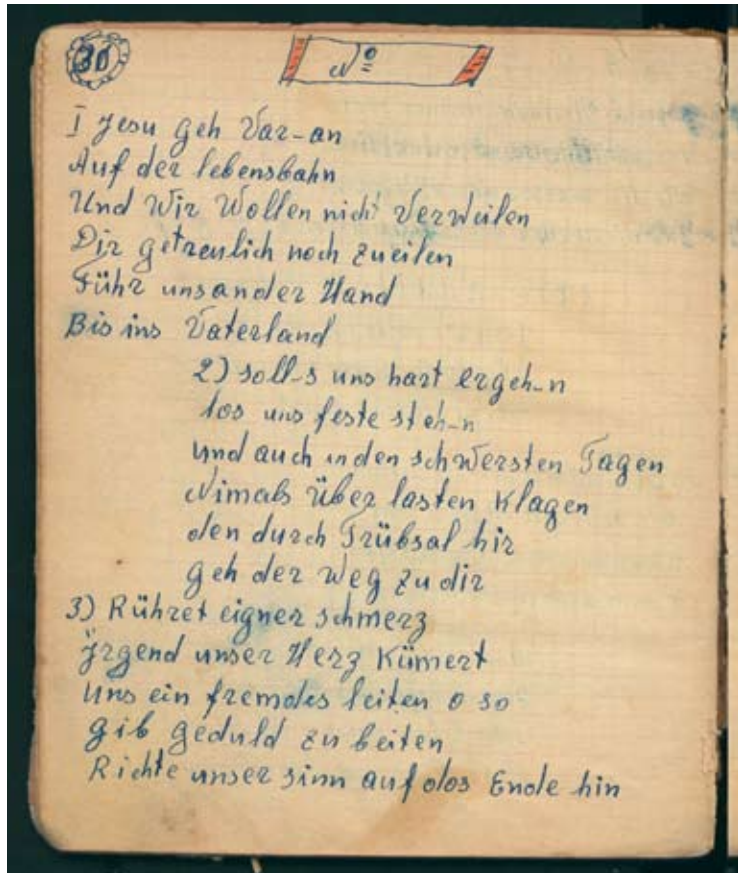 30
№
I Jesu geh Var-an
Auf der lebensbahn
Und Wir Wollen nicht Verweilen
Dir getreulich noch zueilen
Führ unsander Hand
Bis ins Vaterland
2) soll-s uns hart ergeh-n
los uns feste steh-n
und auch inden schwersten Tagen
Nimals über lasten Klagen
den durch Trübsal hir
geh der weg zu dir
3) Rühret eigner schmerz
Jrgend unser Herz Kümert
Uns ein fremdes leiten o so
gib geduld zu beiten
Richte unser sinn auf dos Ende hin